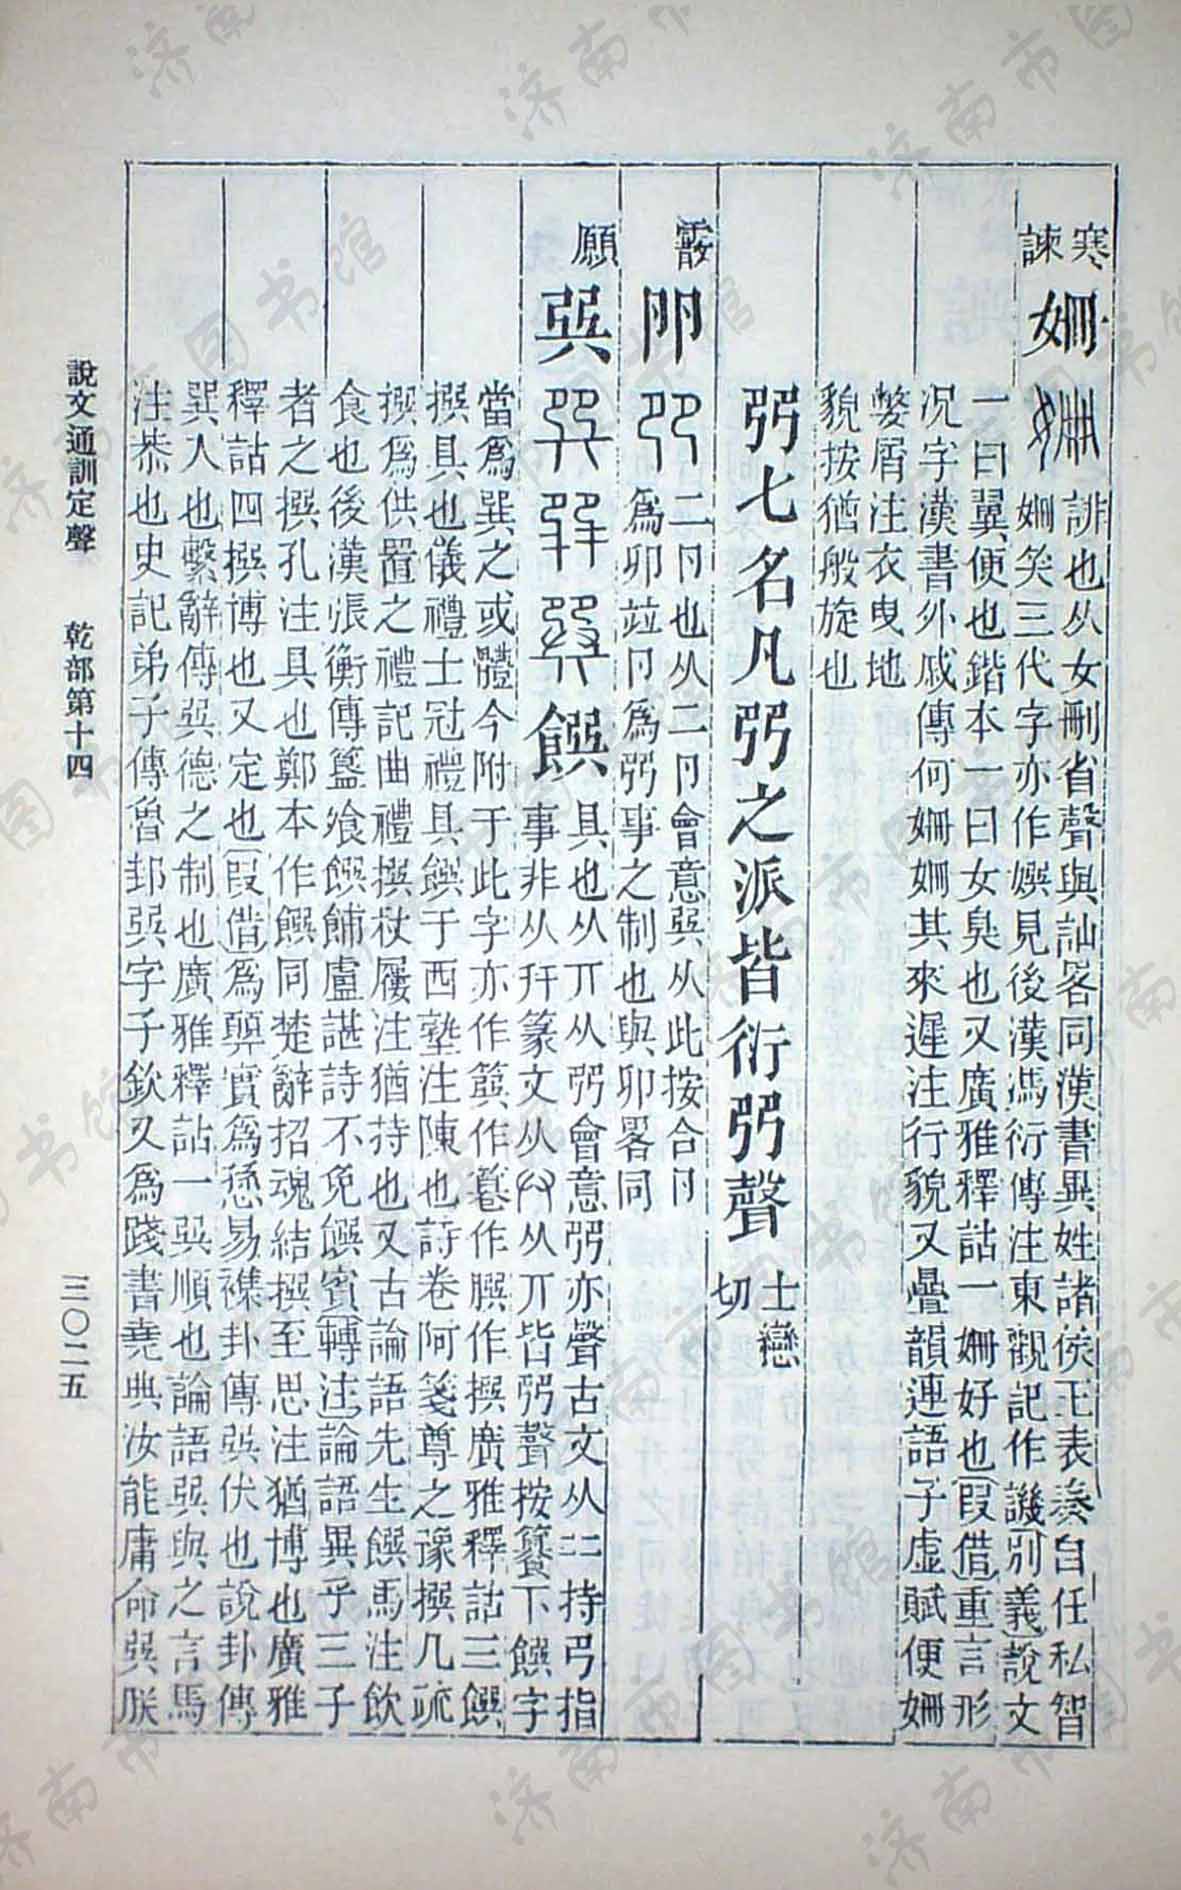 寒
諫
姍 誹也从女刪省聲與訕畧同漢書異姓諸侯王表秦自任私智
姍笑三代字亦作㜺見後漢馮衍傳注東觀記作譏(別義)說文
一曰翼便也鍇本一曰女臭也又廣雅釋詁一姍好也(叚借)重言形
况字漢書外戚傳何姍姍其來遲注行貌又疊韻連語子虛賦便姍
嫳屑注衣曳地
貌按猶般旋也
𠨎七名凡𠨎之派皆衍𠨎聲 士戀切
霰
𠨎 二卪也从二卪會意巽从此按合卪
為卯竝卪為𠨎事之制也與卯畧同
願
巽 饌 具也从丌从𠨎會意𠨎亦聲古文从二持弓指
事非从幵篆文从丌皆𠨎聲按籑下饌字
當為巽之或體今附于此字亦作簨作作作撰廣雅釋詁三饌
撰具也儀禮士冠禮具饌于西塾注陳也詩卷阿箋尊之豫撰几疏
撰為供置之禮記曲禮撰杖屨注猶持也又古論語先生饌馬注飲
食也後漢張衡傳簋飧饌餔盧諶詩不免饌賓(轉注)論語異乎三子
者之撰孔注具也鄭本作饌同楚辭招魂結撰至思注猶博也廣雅
釋詁四撰博也又定也(叚借)為顨實為愻易襍卦傳巽伏也說卦傳
巽入也繫辭傳巽德之制也廣雅釋詁一巽順也論語巽與之言馬
注恭也史記弟子傳魯邽巽字子欽又為踐書堯典汝能庸命巽朕
說文通訓定聲 乾部第十四 三〇二五
济南市图书馆